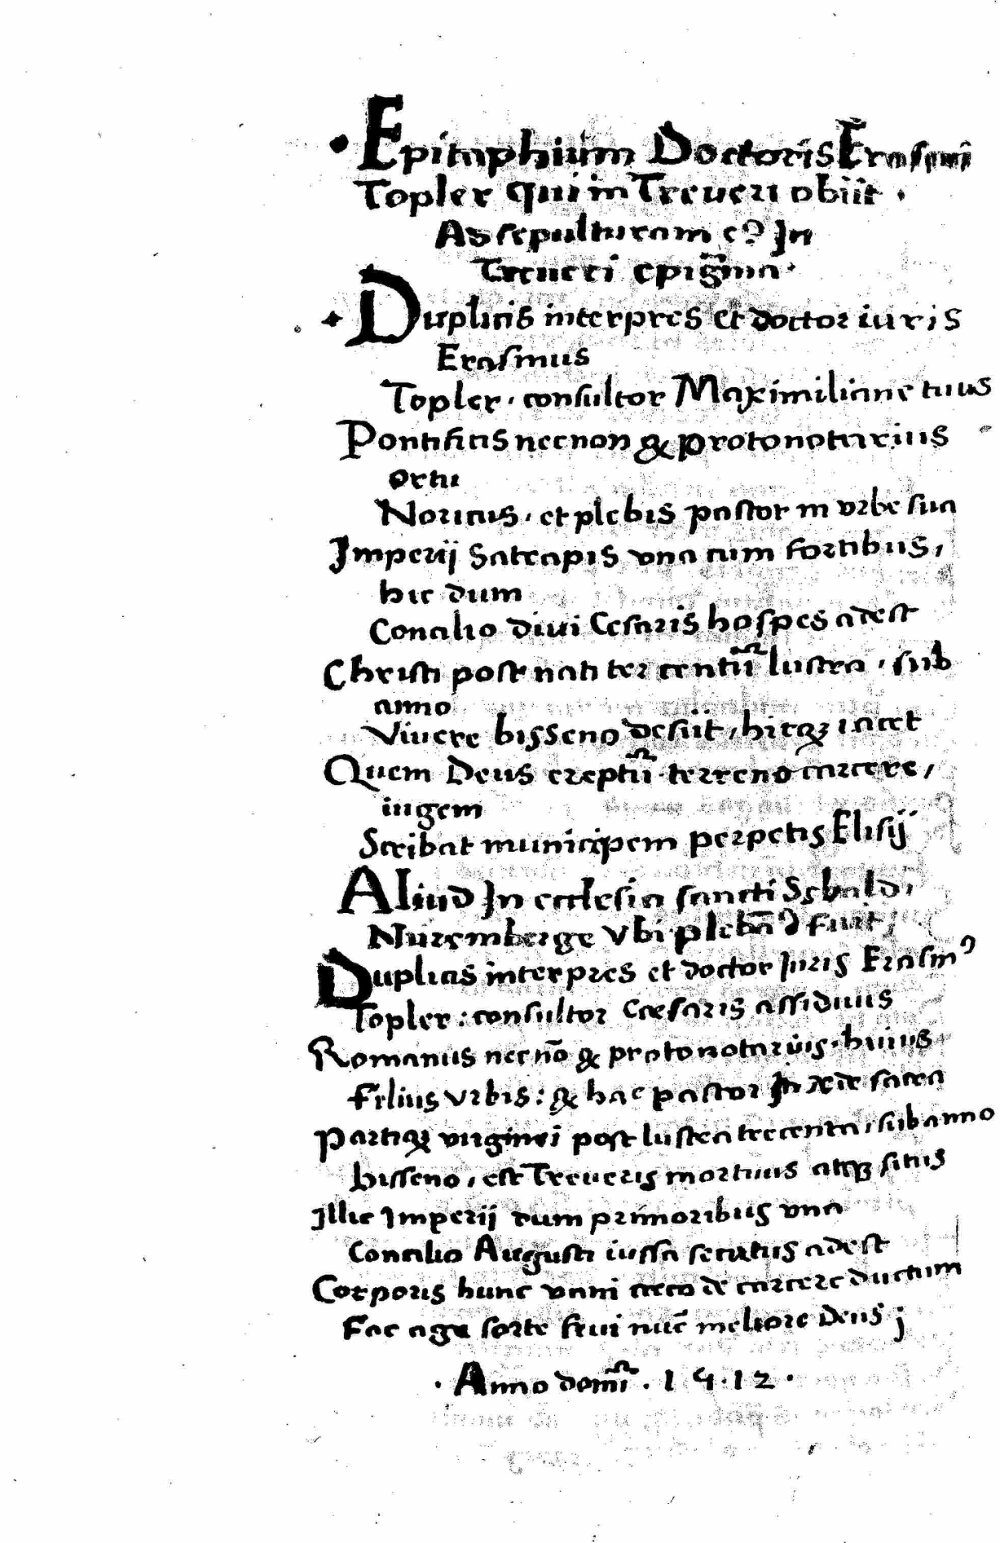 Epitaphium Doctoris Erasmi
Topler qui in Treveri obiit ·
Ad sepulturam eꝰ In
Treveri epigrãma ·
Duplicis interpres et doctor iuris
Erasmus
Topler · consultor Maximiliane tuus
Pontificis necnon & protonotarius
ortu
Noricus, et plebis pastor in vrbe sua
Imperij Satrapis vna cum fortibus,
hic dum
Concilio diui Cesaris hospes adest
Christi post nati ter centũ lustra, sub
anno
Viuere bisseno desiit, hicqꝫ iacet
Quem Deus ereptũ terreno carcere,
iugem
Scribat municipem perpetis Elisij
Aliud In ecclesia sancti Sebaldi,
Nuremberge Vbi plebãꝰ fuit,
Duplicis interpres et doctor Juris Erasmꝰ
Topler: consultor Caesaris assiduus
Romanus necnõ & protonotarius · huius
Filius vrbis: & hac pastor In aede sacra
Partiqꝫ virginei post lustra trecenta, sub anno
bisseno, est Treueris mortuus atqꝫ situs
Illic Imperij dum primoribus vna
Concilio Augusti iussa secutus adest
Corporis hunc vani caeco de carcere ductum
Fac age sorte frui nũc meliore Deus j
· Anno domĩ · 15·12 ·